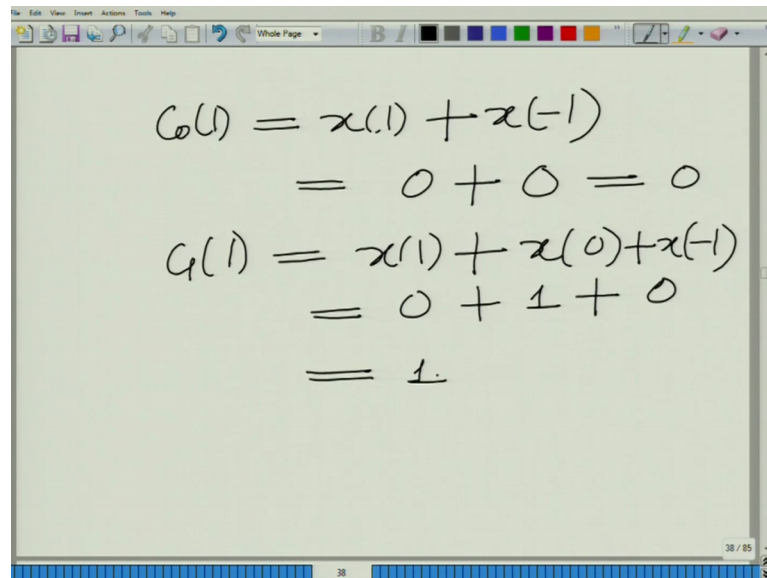 File Edit View Insert Actions Tools Help
Whole Page
C₀(1) = x(1) + x(-1)
= 0 + 0 = 0
C₁(1) = x(1) + x(0) + x(-1)
= 0 + 1 + 0
= 1.
38 / 85
38